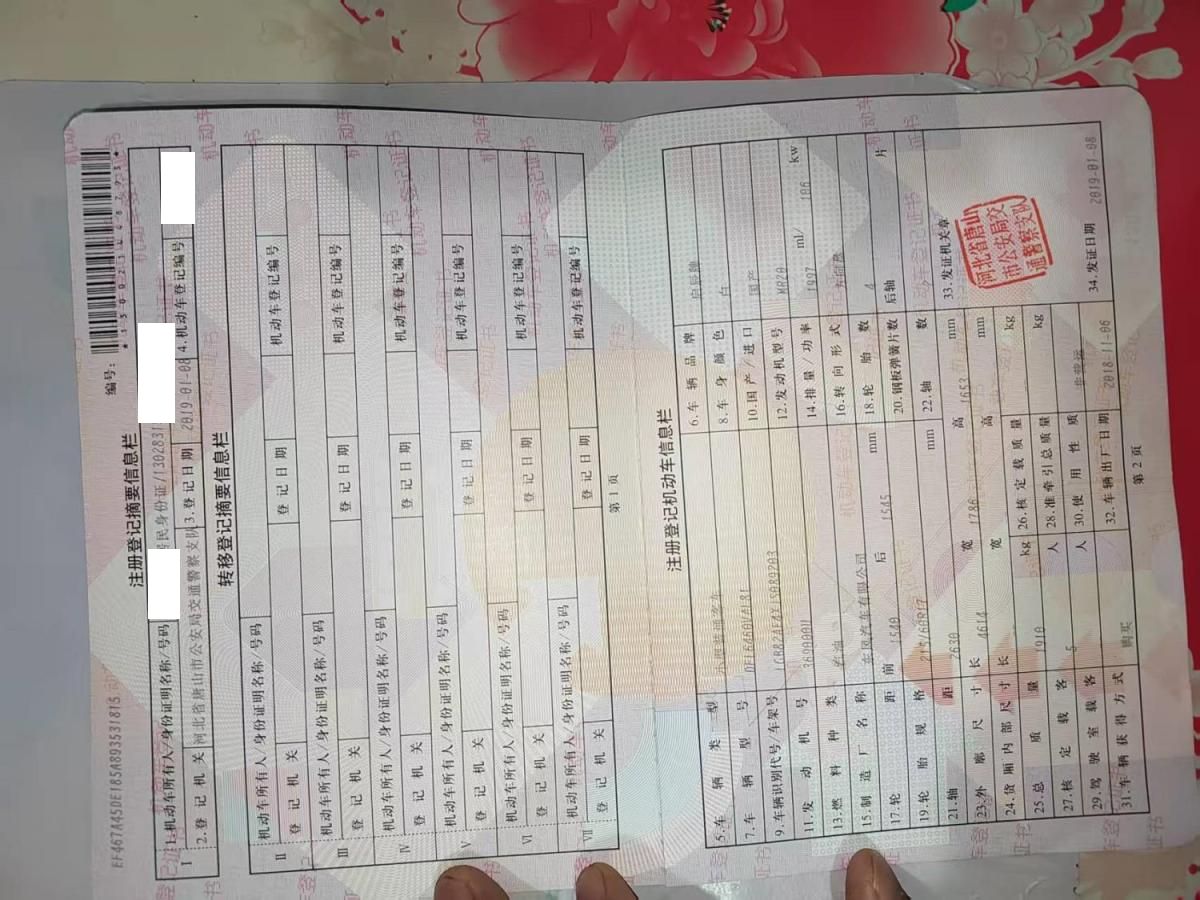 EF467A45DE185A893531815
编号:
注册登记摘要信息栏
I 1.机动车所有人/身份证明名称/号码 居民身份证/1302831
2.登记机关 河北省唐山市公安局交通警察支队 3.登记日期 2019-01-08 4.机动车登记编号
转移登记摘要信息栏
II 机动车所有人/身份证明名称/号码
登记机关 登记日期 机动车登记编号
III 机动车所有人/身份证明名称/号码
登记机关 登记日期 机动车登记编号
IV 机动车所有人/身份证明名称/号码
登记机关 登记日期 机动车登记编号
V 机动车所有人/身份证明名称/号码
登记机关 登记日期 机动车登记编号
VI 机动车所有人/身份证明名称/号码
登记机关 登记日期 机动车登记编号
VII 机动车所有人/身份证明名称/号码
登记机关 登记日期 机动车登记编号
第1页
注册登记机动车信息栏
5.车辆类型 小型普通客车 6.车辆品牌 启辰牌
7.车辆型号 8.车身颜色 白
9.车辆识别代号/车架号 10.国产/进口 国产
11.发动机号 369000U 12.发动机型号 MR20
13.燃料种类 汽油 14.排量/功率 1997 ml/ 106 kw
15.制造厂名称 东风汽车有限公司 16.转向形式 方向盘
17.轮距 前 1540 后 1545 mm 18.轮胎数 4
19.轮胎规格 215/60R17 20.钢板弹簧片数 后轴 片
21.轴距 2630 mm 22.轴数 2
23.外廓尺寸 长 4614 宽 1786 高 1653 mm 33.发证机关章
24.货厢内部尺寸 长 宽 高 mm
25.总质量 1910 kg 26.核定载质量 kg
27.核定载客 5 人 28.准牵引总质量 kg
29.驾驶室载客 人 30.使用性质 非营运
31.车辆获得方式 购买 32.车辆出厂日期 2018-11-06 34.发证日期 2019-01-08
河北省唐山
市公安局交
通警察支队
第2页